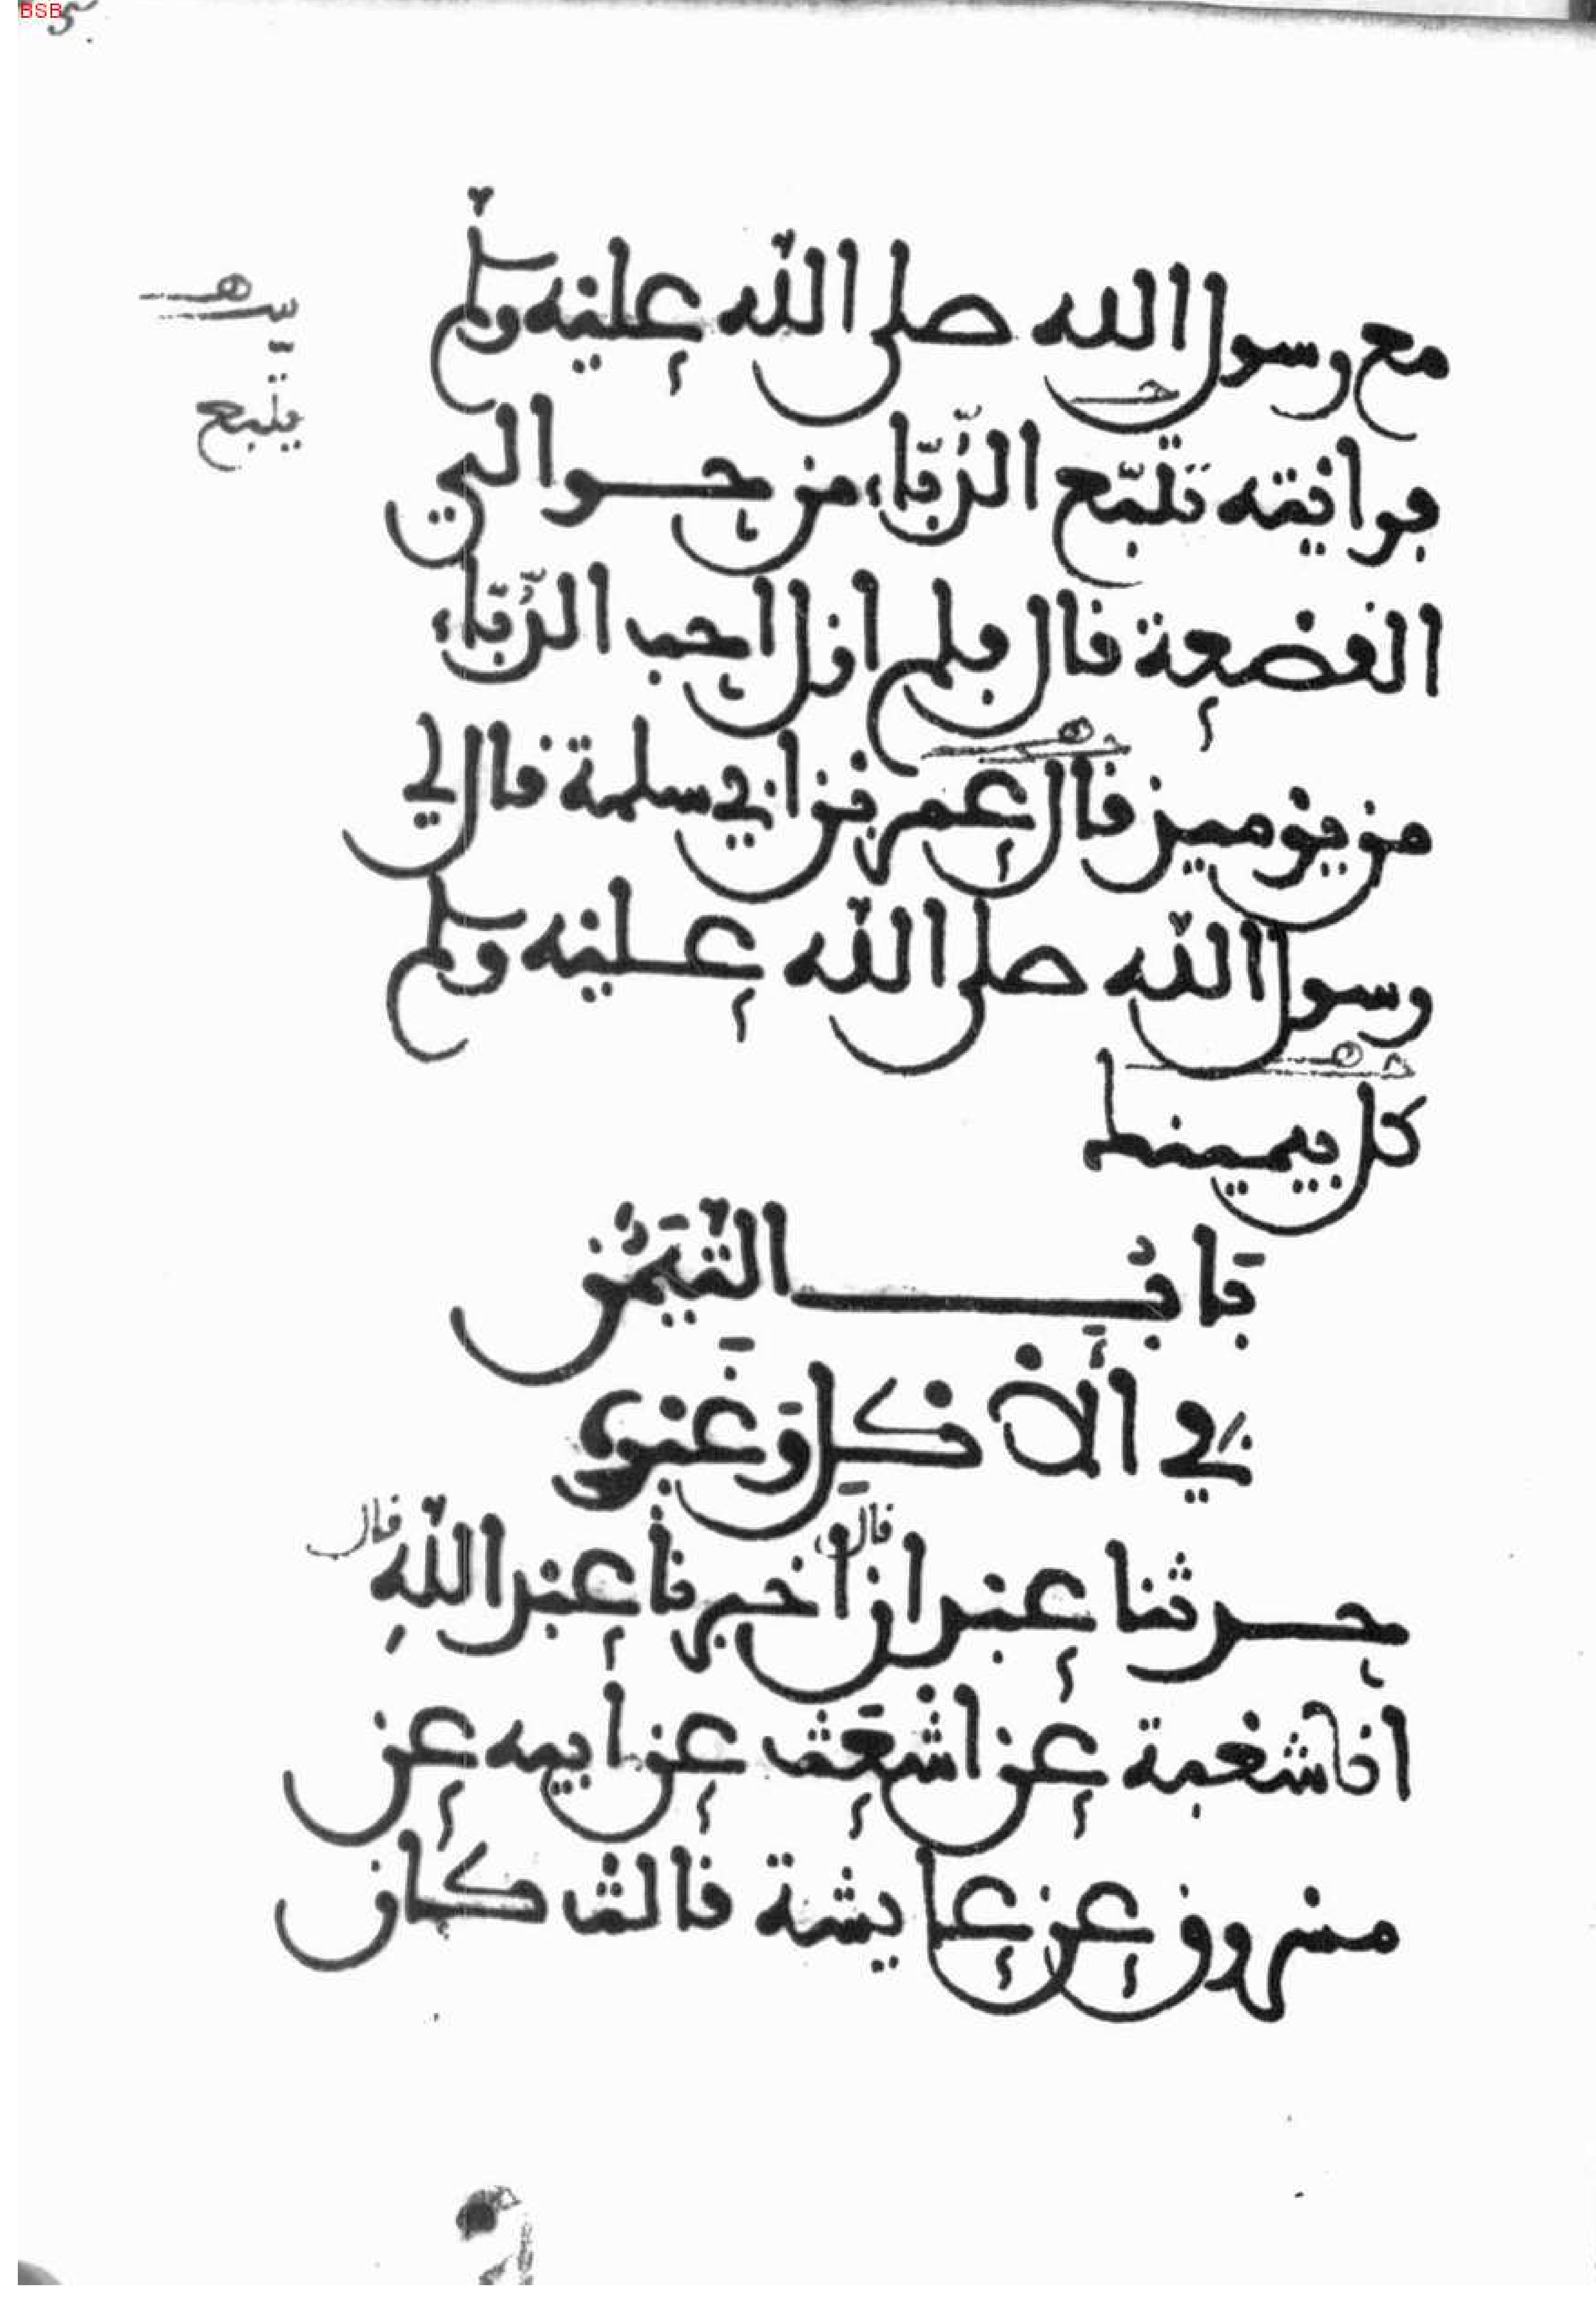 BSB
مع رسول الله صلى الله عليه وسلم
فرأيته تتبّع الدّبّاء من حوالي
يتّبع
القصعة قال فلم ازل احب الدّبّاء
من يومئذ قال عمر بن ابي سلمة قال لي
رسول الله صلى الله عليه وسلم
كل بيمينك
بَابُ التَّيَمُّنِ
في الأكل وَغَيره
حدثنا عبدان قال اخبرنا عبد الله قال
انا شعبة عن اشعَث عن ابيه عن
مسروق عن عايشة قالت كان